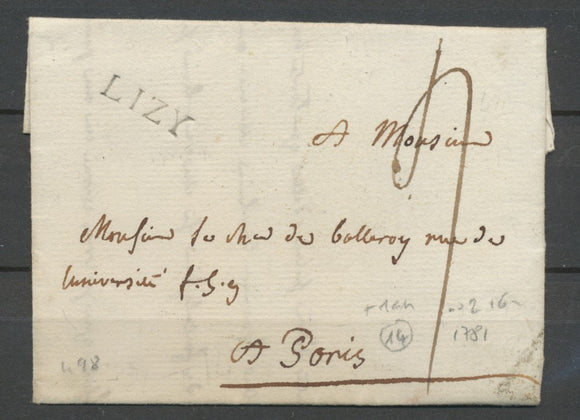 LIZY
A Monsieur
Monsieur le ch.er de Balleroy rue de
luniversité f. S. g
14
1781
A Paris
498